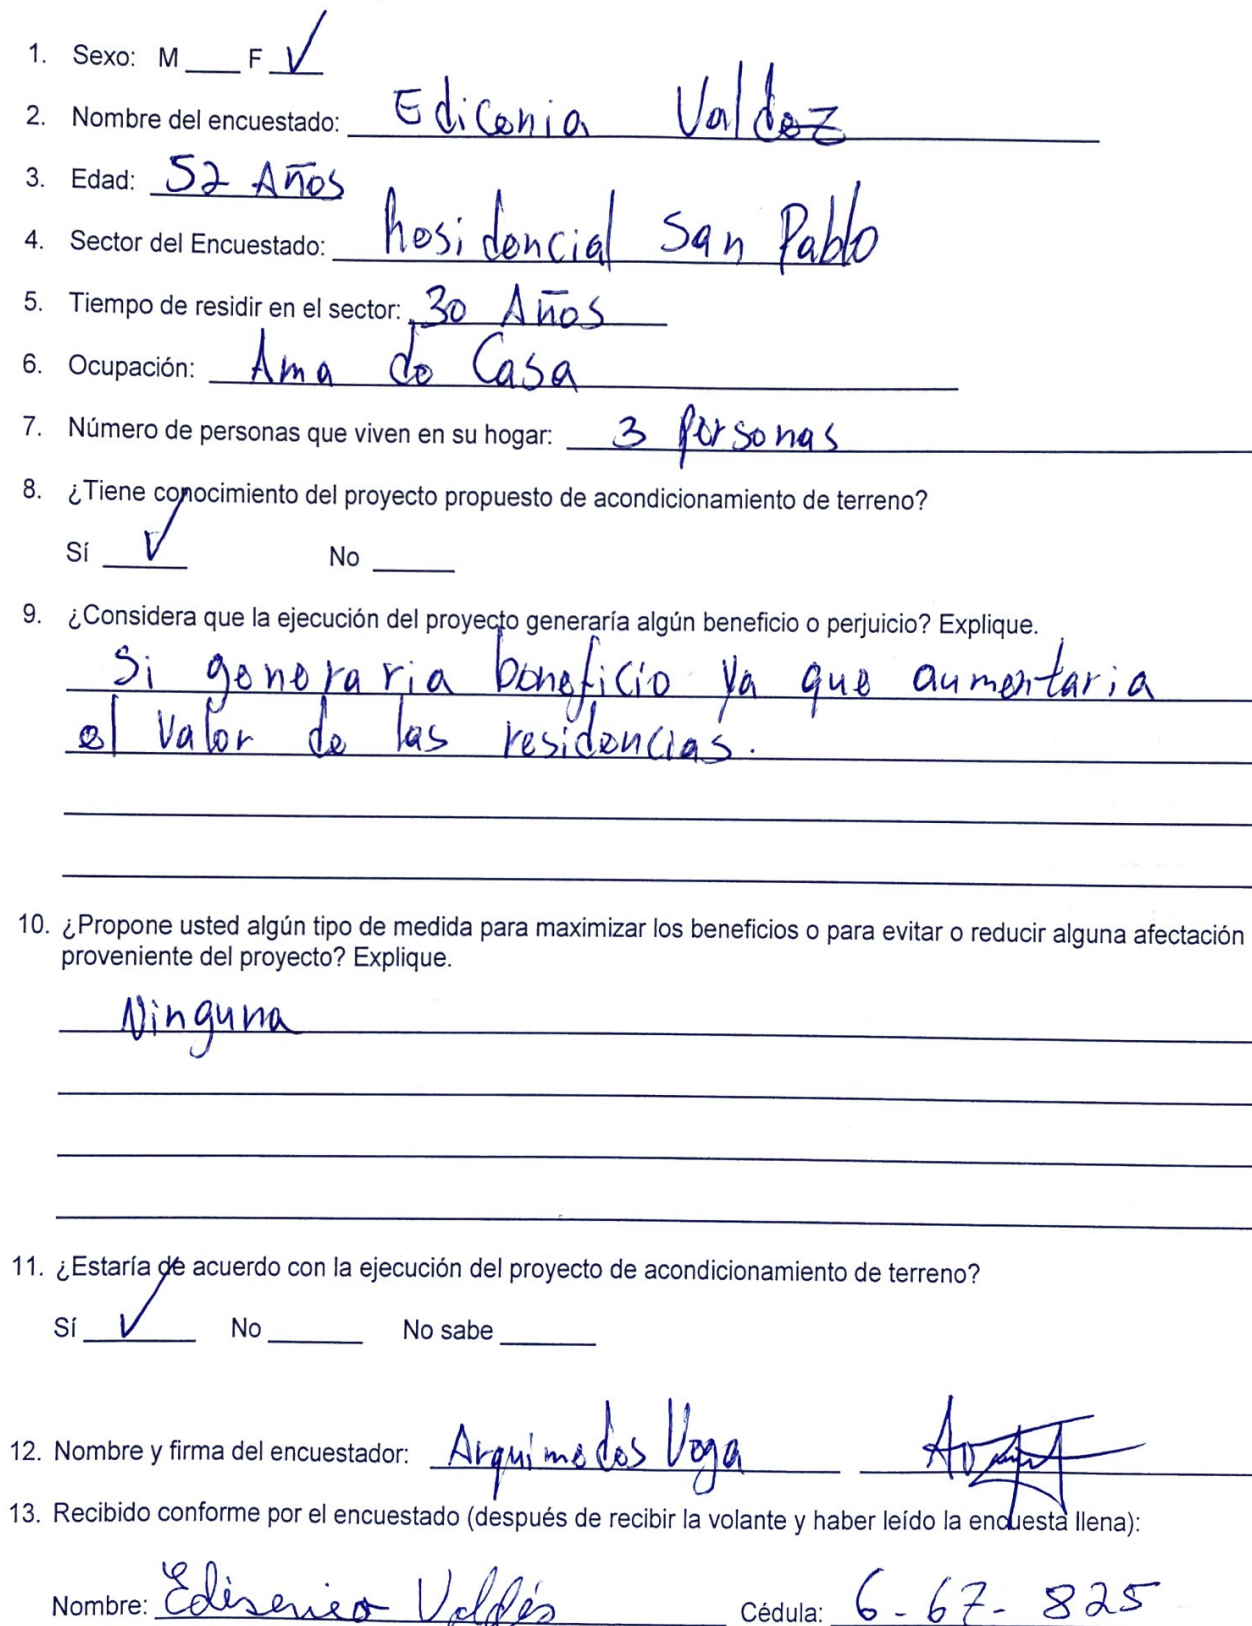 1. Sexo: M ____ F ✓
2. Nombre del encuestado: Edicenia Valdez
3. Edad: 52 Años
4. Sector del Encuestado: Residencial San Pablo
5. Tiempo de residir en el sector: 30 Años
6. Ocupación: Ama de Casa
7. Número de personas que viven en su hogar: 3 personas
8. ¿Tiene conocimiento del proyecto propuesto de acondicionamiento de terreno?
Sí ✓ No ____
9. ¿Considera que la ejecución del proyecto generaría algún beneficio o perjuicio? Explique.
Si generaria beneficio ya que aumentaria
el valor de las residencias.
10. ¿Propone usted algún tipo de medida para maximizar los beneficios o para evitar o reducir alguna afectación
proveniente del proyecto? Explique.
Ninguna
11. ¿Estaría de acuerdo con la ejecución del proyecto de acondicionamiento de terreno?
Sí ✓ No ____ No sabe ____
12. Nombre y firma del encuestador: Arquimedes Vega
13. Recibido conforme por el encuestado (después de recibir la volante y haber leído la encuesta llena):
Nombre: Edisenia Valdés Cédula: 6-67-825